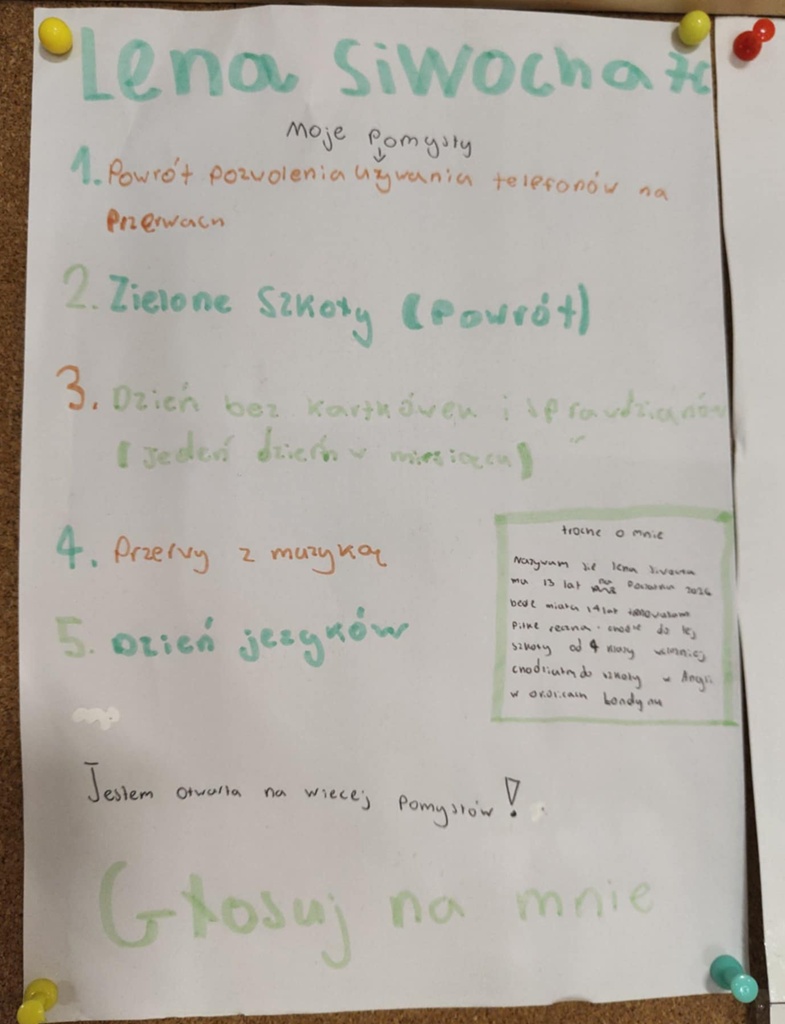 Lena Siwocha 7c
Moje pomysły
1. Powrót pozwolenia używania telefonów na
przerwach
2. Zielone Szkoły (powrót)
3. Dzień bez kartkówek i sprawdzianów
(jeden dzień w miesiącu)
4. Przerwy z muzyką
5. Dzień języków
troche o mnie
Nazywam się Lena Siwocha
mam 13 lat na 2026
bede miała 14 lat trenowałam
piłke reczna. chodze do tej
szkoły od 4 klasy wcześniej
chodziłam do szkoły w Angli
w okolicach Londynu
Jestem otwarta na wiecej pomysłów!
Głosuj na mnie